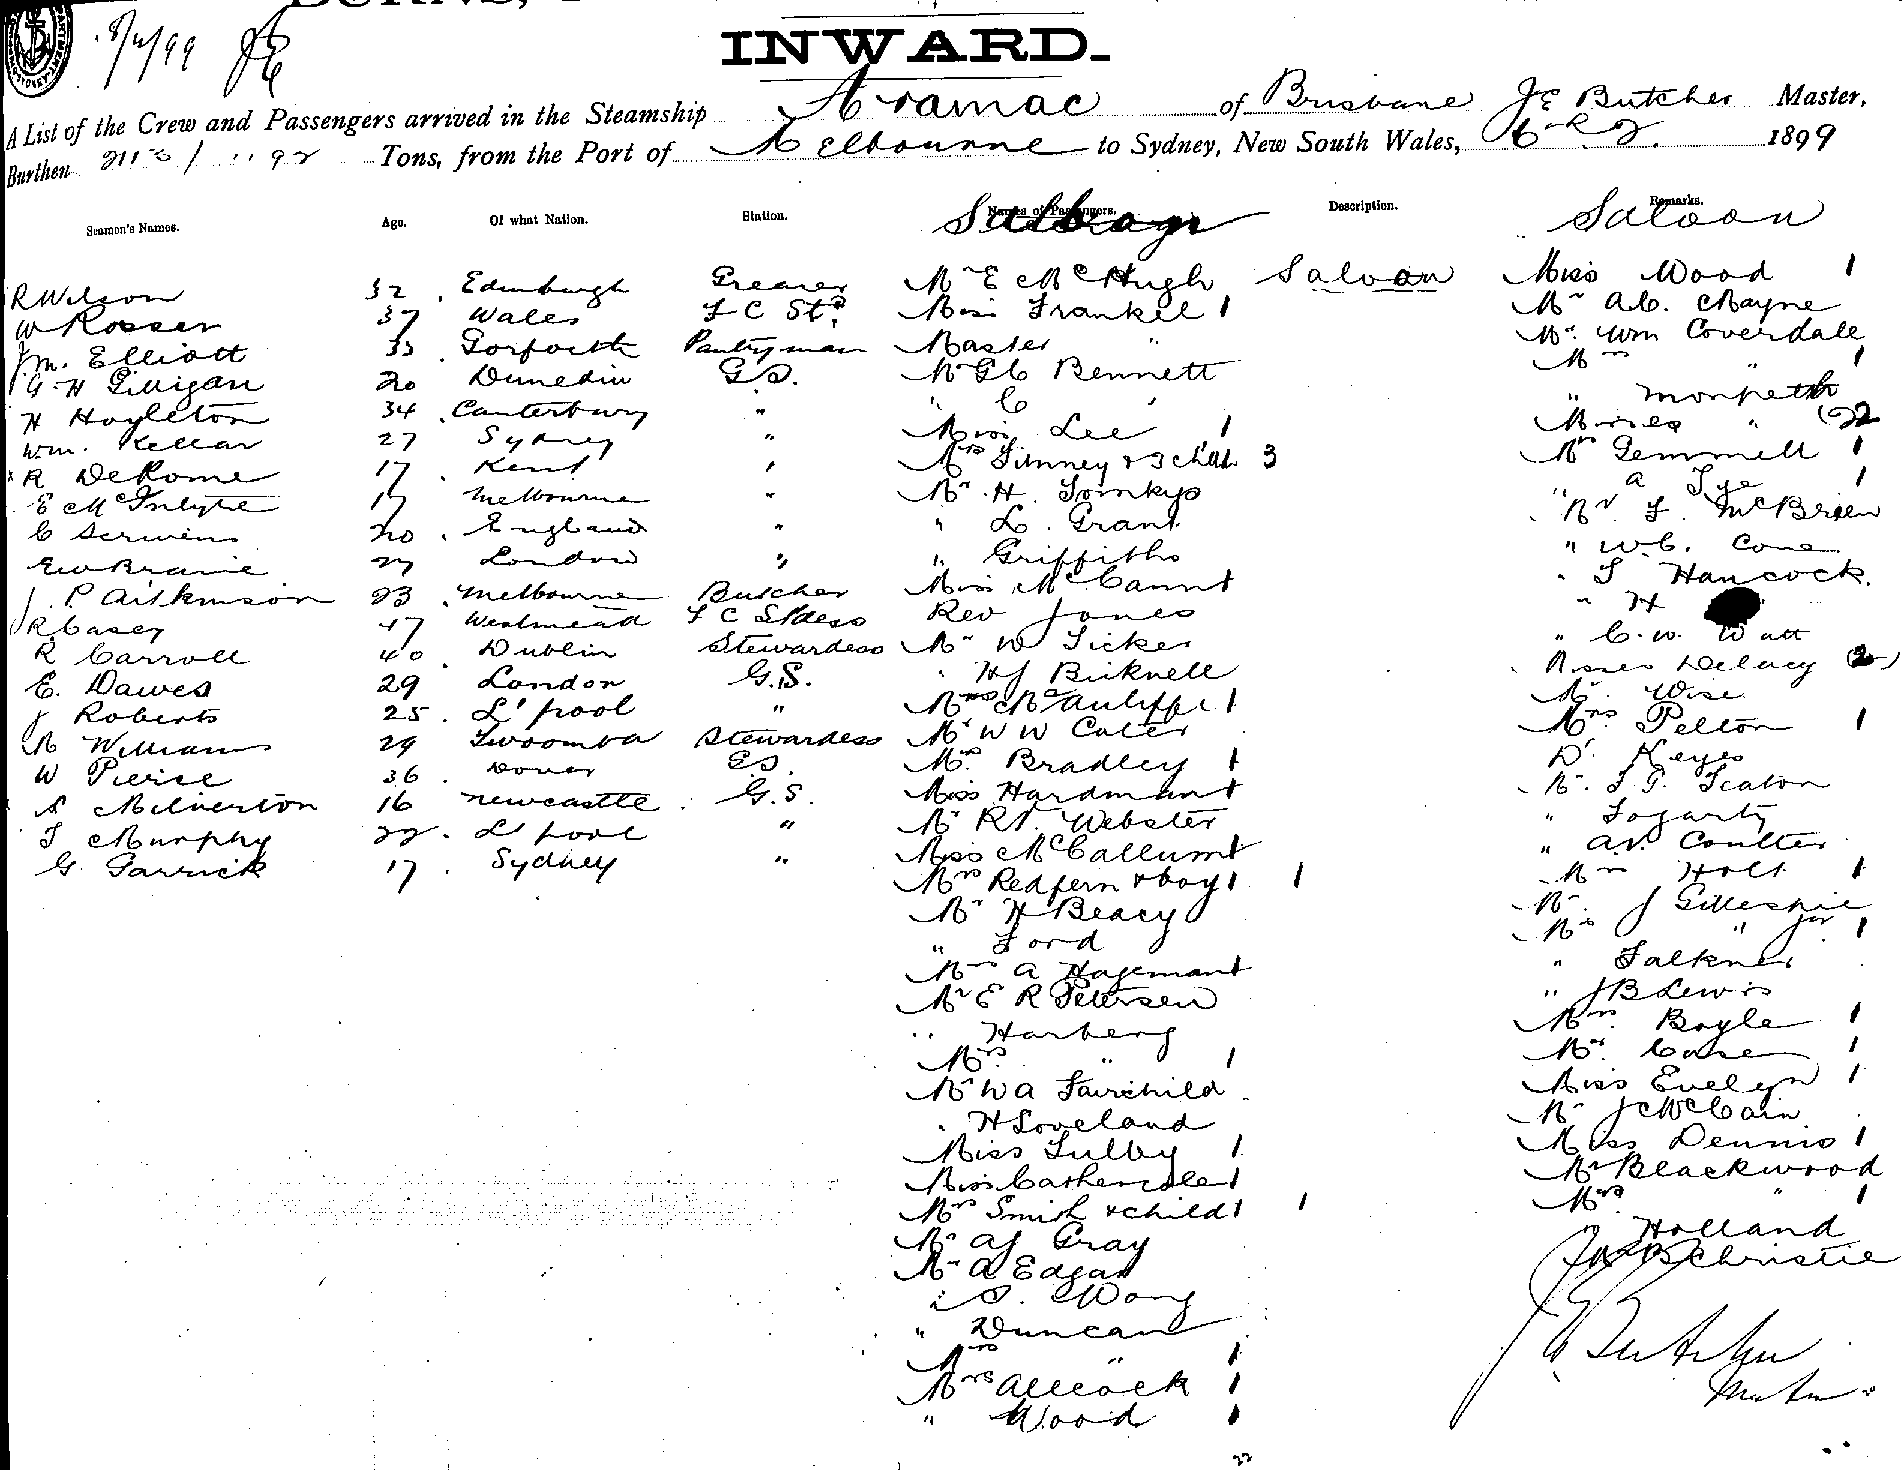 INWARD.
A List of the Crew and Passengers arrived in the Steamship Aramac of Brisbane J E Butcher Master,
Burthen Tons, from the Port of Melbourne to Sydney, New South Wales, 1899
Seamen's Names. Age. Of what Nation. Station. Names of Passengers. Description. Remarks.
Saloon
R Wilson 32 Edinburgh Greaser Mr E McHugh Saloon Miss Wood 1
W Rosser 37 Wales F C Std Miss Frankel 1 Mr A.C. Mayne
Jm. Elliott 33 Gosforth Pantryman Master " Mr Wm Coverdale
G H Gilligan 20 Dunedin G.S. Mr G C Bennett Mrs " 1
H Hoyleton 34 Canterbury " " C " " Monpeth
Wm. Kellar 27 Sydney " Miss Lee 1 Misses " (2)
R DeRome 17 Kent " Mrs Finney & 3 chil. 3 Mrs Gemmell 1
E McIntyre 17 Melbourne " Mr H. Tomkys " A Tye 1
C Scrivens 20 England " " L. Grant " Rv F. McBrien
EW Braine 27 London " " Griffiths " W.C. Cone
J. P. Aitkinson 23 Melbourne Butcher Miss McCann 1 " T Hancock.
R Casey 47 Westmead F C Stdess Rev Jones " H
R Carroll 40 Dublin Stewardess Mr W Ticker " C.W. Watt
E. Dawes 29 London G.S. " HJ Bicknell Misses Delacy (2)
J Roberts 25 L'pool " Mrs McAuliffe 1 Mr. Wise
M Williams 29 Twoomba Stewardess Mr W W Cater Mrs Pelton 1
W Pierse 36 Dover GS. Mrs Bradley 1 Dr Keyes
S Milverton 16 Newcastle G.S. Miss Hardman 1 Mr. T.T. Seaton
T Murphy 22 L'pool " Mr RN Webster " Fogarty
G. Garrick 17 Sydney " Miss McCallum 1 " A.V. Coulter
Mrs Redfern & boy 1 1 Mrs Holt 1
Mr H Beacy Mr. J Gillespie
" Ford Mrs " Jnr 1
Mrs A Hageman 1 " Falkner
Mr E R Petersen " J B Lewis
" Harberg Mrs. Boyle 1
Mrs " 1 Mrs. Case 1
Mr W A Fairchild Miss Evelyn 1
" H Loveland Mr J McCain
Miss Tulby 1 Miss Dennis 1
Miss 1 Mr Blackwood
Mrs Smith & child 1 1 Mrs " 1
Mr AJ Gray Holland
Mr A Edgar Christie
" S. Wong
" Duncan J E Butcher
Mrs " 1 Master
Mrs Allcock 1
" Wood 1
22